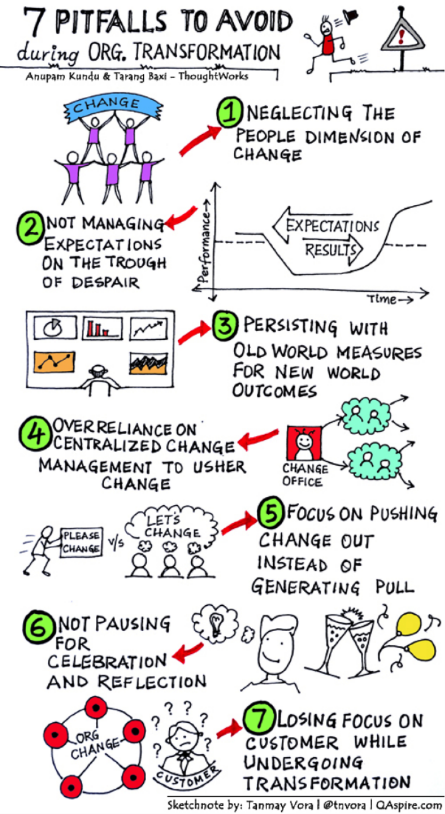 7 PITFALLS TO AVOID
during ORG. TRANSFORMATION
Anupam Kundu & Tarang Baxi - ThoughtWorks
CHANGE
1 NEGLECTING THE
PEOPLE DIMENSION OF
CHANGE
2 NOT MANAGING
EXPECTATIONS
ON THE TROUGH
OF DESPAIR
Performance→
EXPECTATIONS
RESULTS
Time→
3 PERSISTING WITH
OLD WORLD MEASURES
FOR NEW WORLD
OUTCOMES
4 OVER RELIANCE ON
CENTRALIZED CHANGE
MANAGEMENT TO USHER
CHANGE
CHANGE
OFFICE
5 FOCUS ON PUSHING
CHANGE OUT
INSTEAD OF
GENERATING PULL
PLEASE
CHANGE
v/s
LET'S
CHANGE
6 NOT PAUSING
FOR
CELEBRATION
AND REFLECTION
ORG
CHANGE
? ? ? ? ? ?
CUSTOMER
7 LOSING FOCUS ON
CUSTOMER WHILE
UNDERGOING
TRANSFORMATION
Sketchnote by: Tanmay Vora | @tnvora | QAspire.com